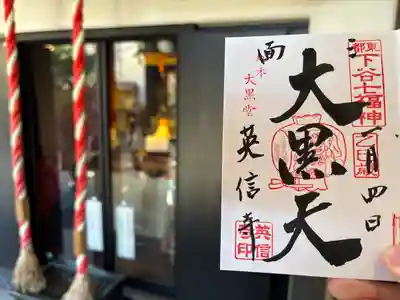 東都
下谷七福神
乙巳歳
一月四日
三面
大黒天
大黒堂
英信寺
英信寺印